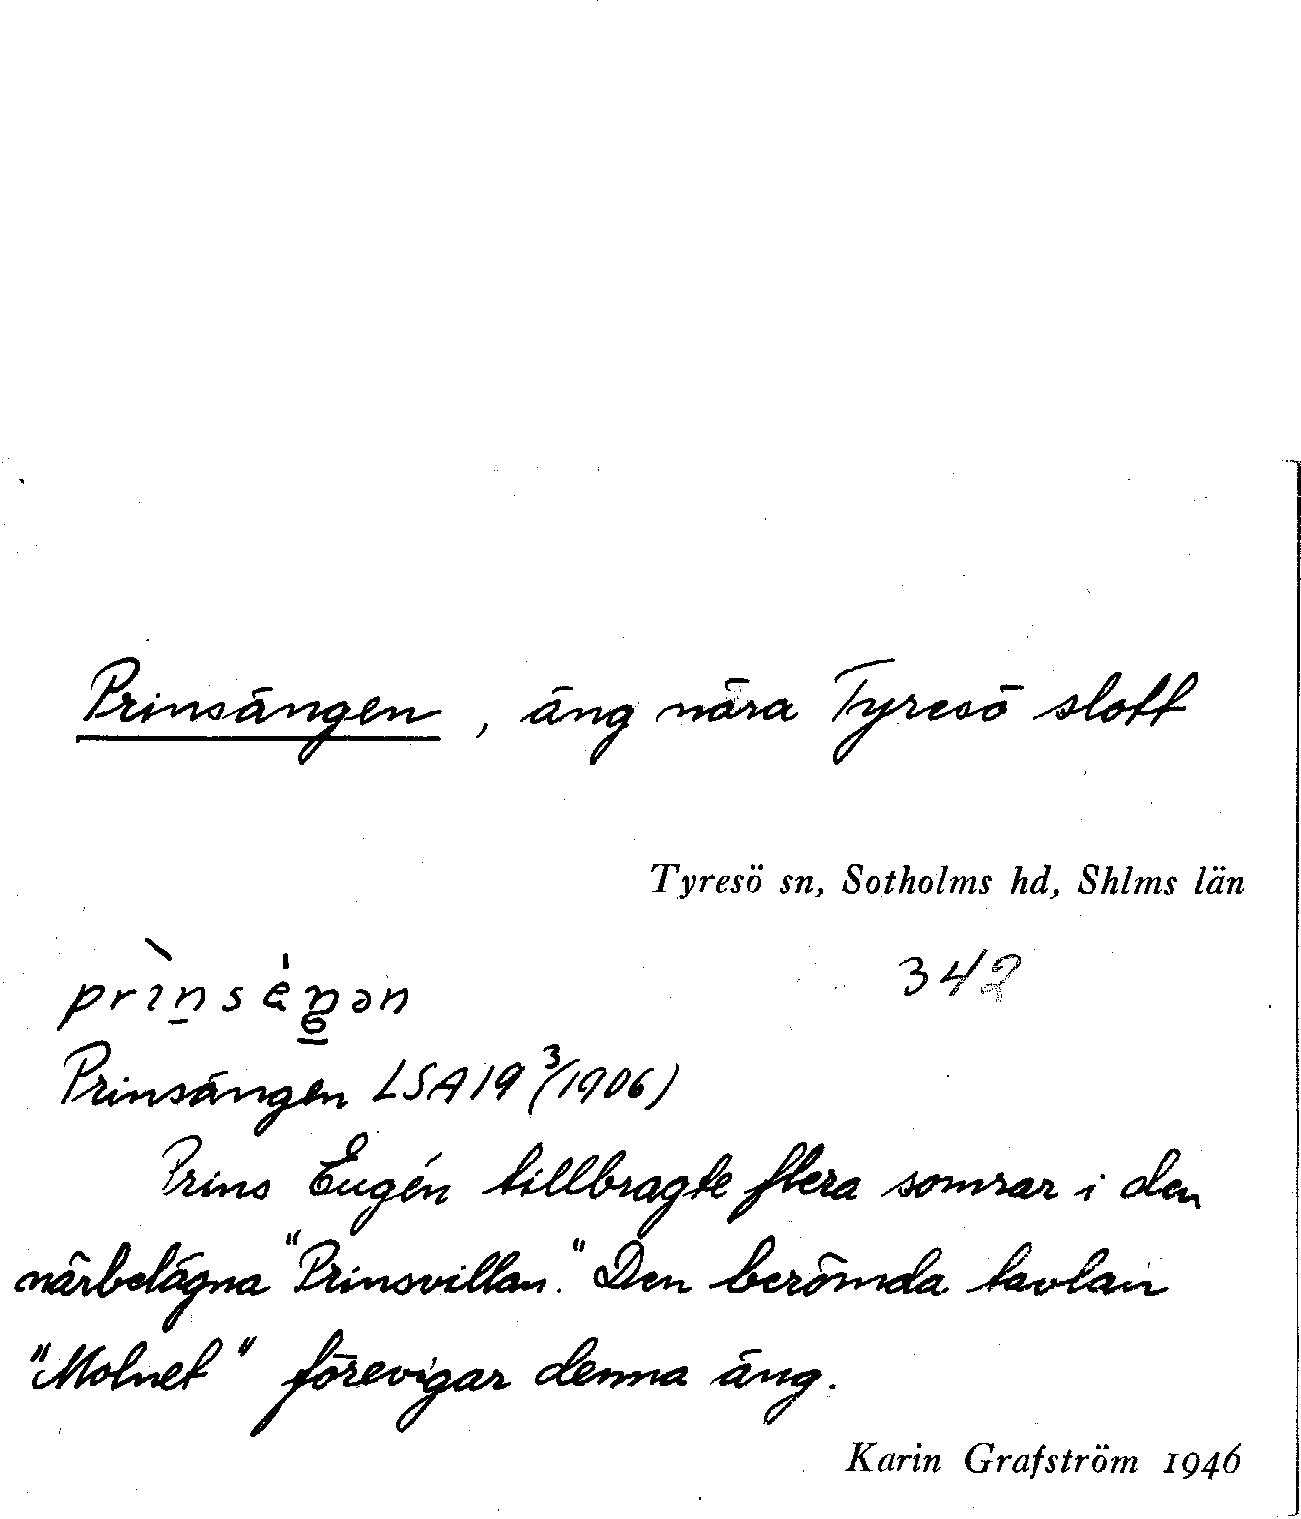 Prinsängen, äng nära Tyresö slott
Tyresö sn, Sotholms hd, Shlms län
342
Prinsängen LSA19 (3/1906)
Prins Eugén tillbragte flera somrar i den
närbelägna "Prinsvillan." Den berömda tavlan
"Molnet" förevigar denna äng.
Karin Grafström 1946